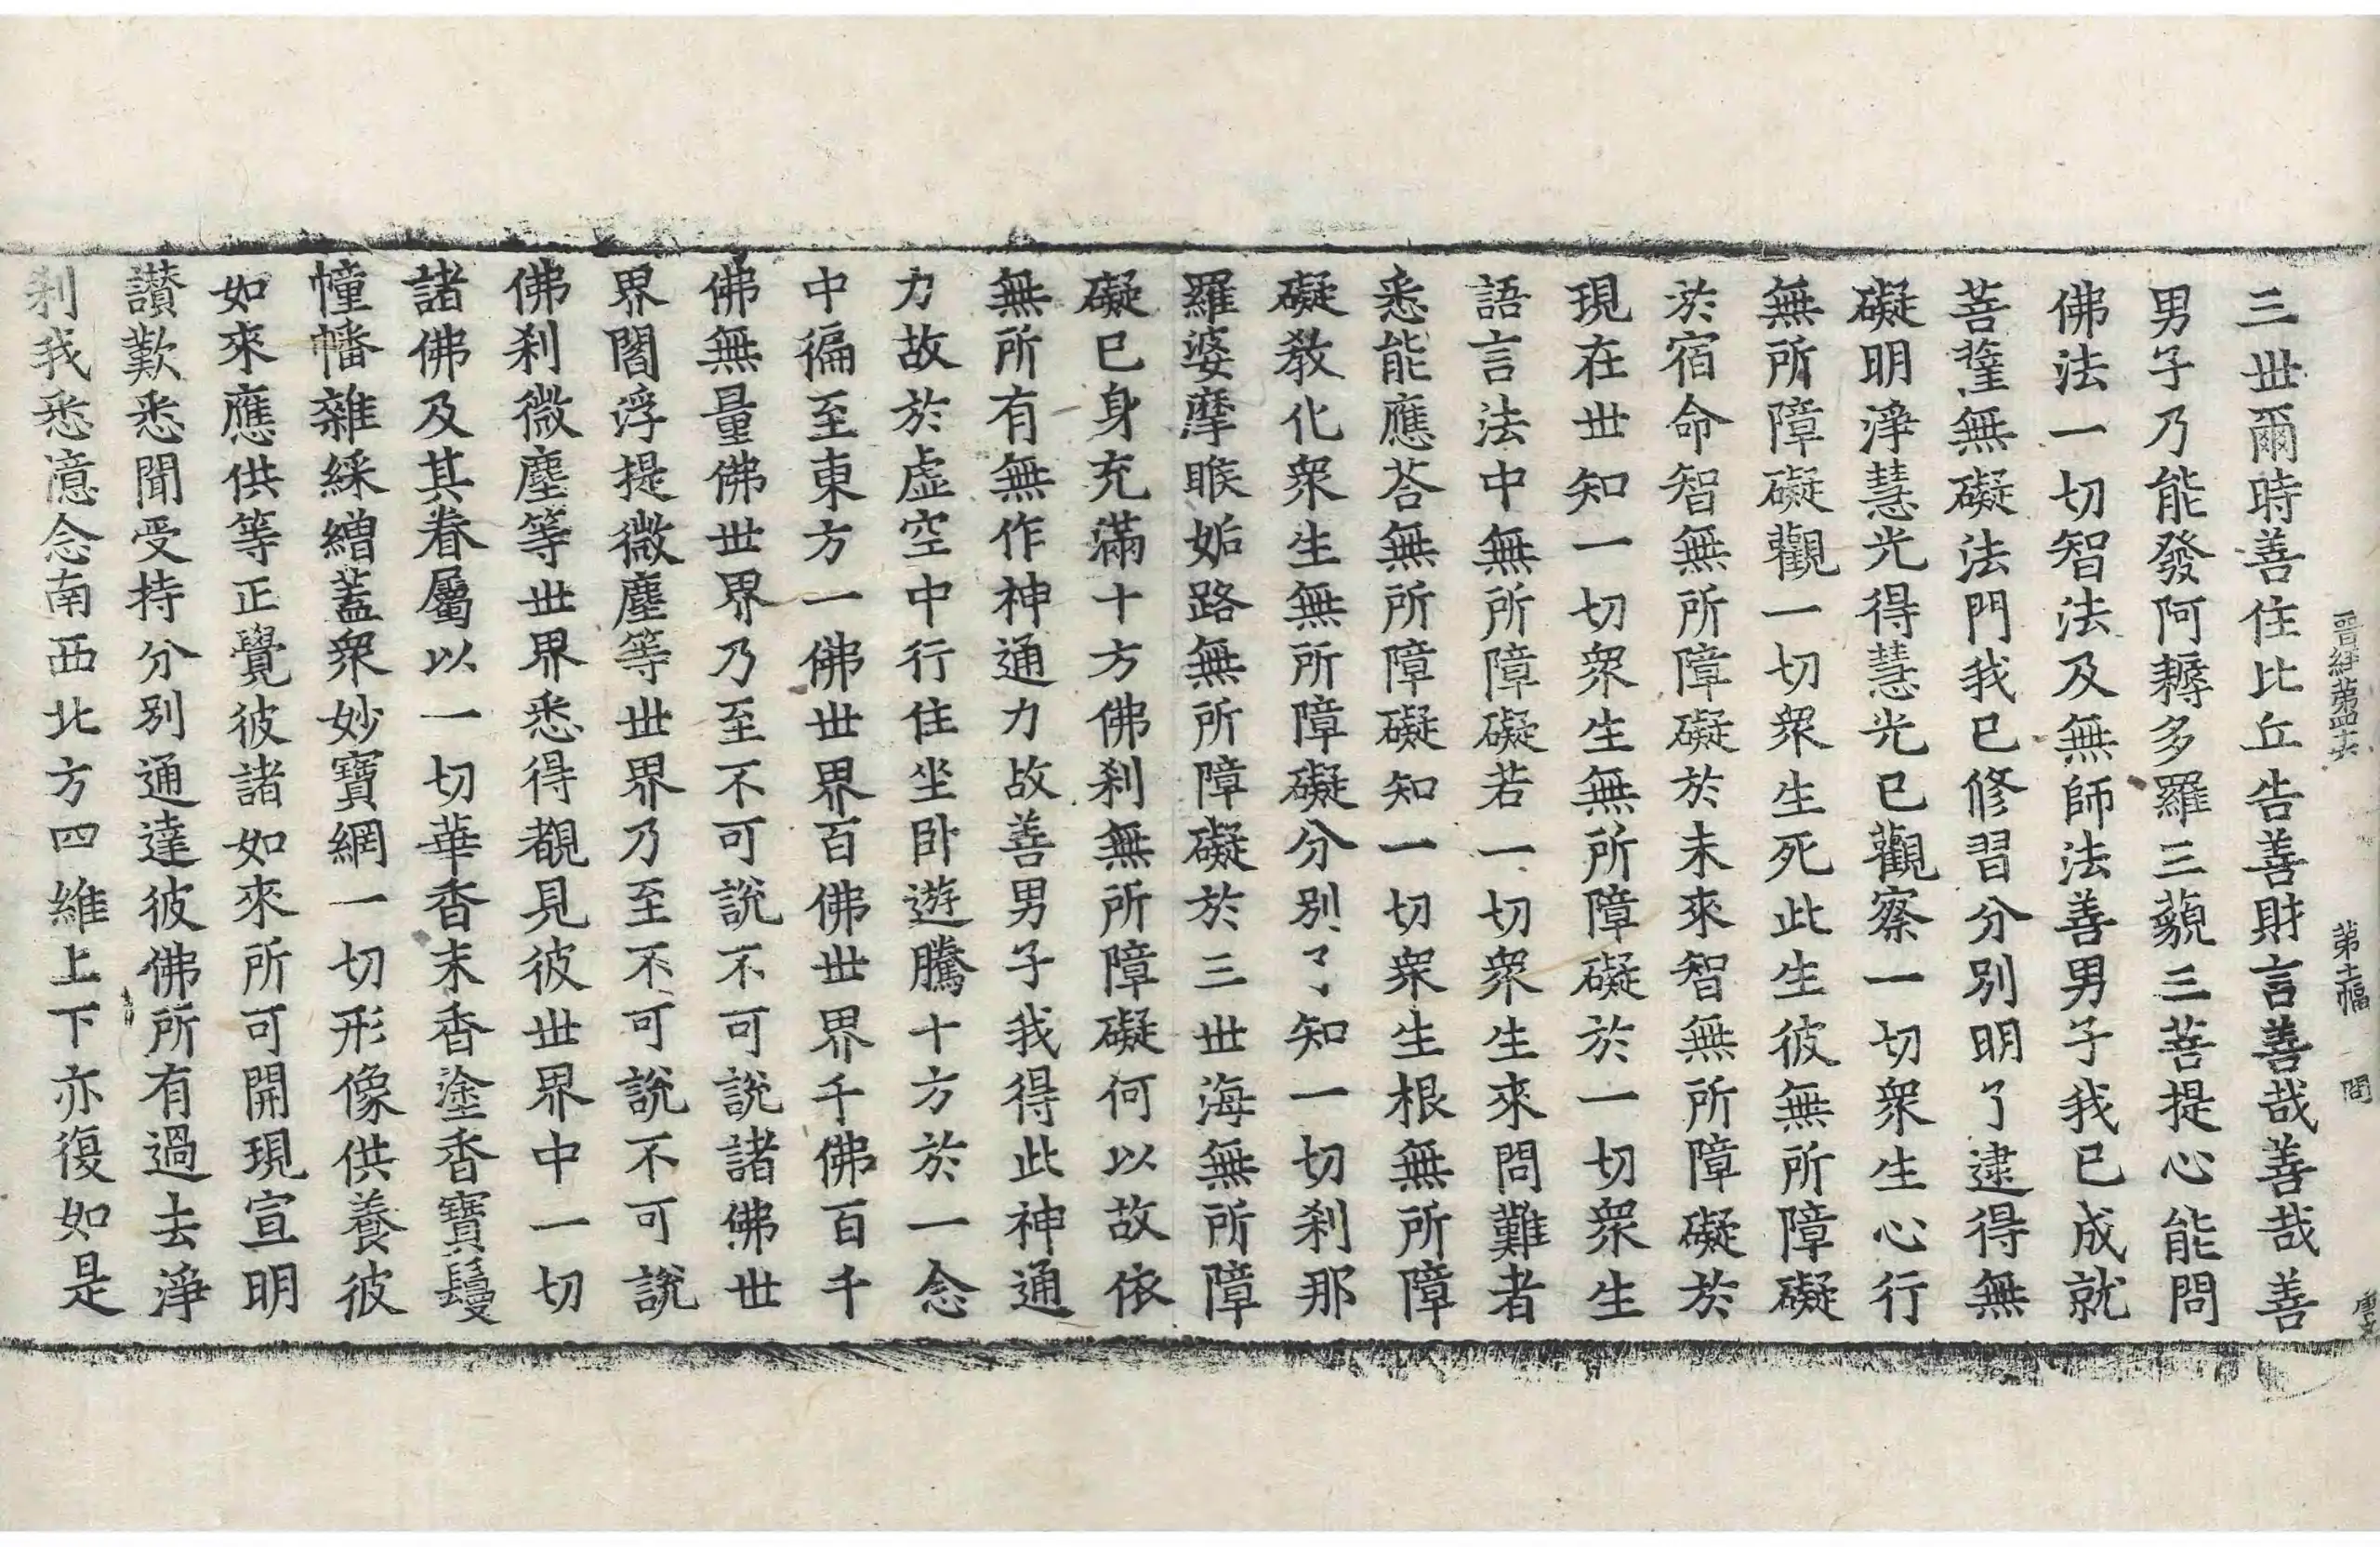 晋経第四十六 第十二幅 問
三世爾時善住比丘告善財言善哉善哉善
男子乃能發阿耨多羅三藐三菩提心能問
佛法一切智法及無師法善男子我已成就
菩薩無礙法門我已修習分別明了逮得無
礙明淨慧光得慧光已觀察一切衆生心行
無所障礙觀一切衆生死此生彼無所障礙
於宿命智無所障礙於未來智無所障礙於
現在世知一切衆生無所障礙於一切衆生
語言法中無所障礙若一切衆生來問難者
悉能應荅無所障礙知一切衆生根無所障
礙教化衆生無所障礙分別了知一切刹那
羅婆摩睺姤路無所障礙於三世海無所障
礙已身充滿十方佛刹無所障礙何以故依
無所有無作神通力故善男子我得此神通
力故於虛空中行住坐卧遊騰十方於一念
中徧至東方一佛世界百佛世界千佛百千
佛無量佛世界乃至不可說不可說諸佛世
界閻浮提微塵等世界乃至不可說不可說
佛刹微塵等世界悉得覩見彼世界中一切
諸佛及其眷屬以一切華香末香塗香寶鬘
幢幡雜綵繒蓋衆妙寶網一切形像供養彼
如來應供等正覺彼諸如來所可開現宣明
讃歎悉聞受持分別通達彼佛所有過去淨
刹我悉憶念南西北方四維上下亦復如是